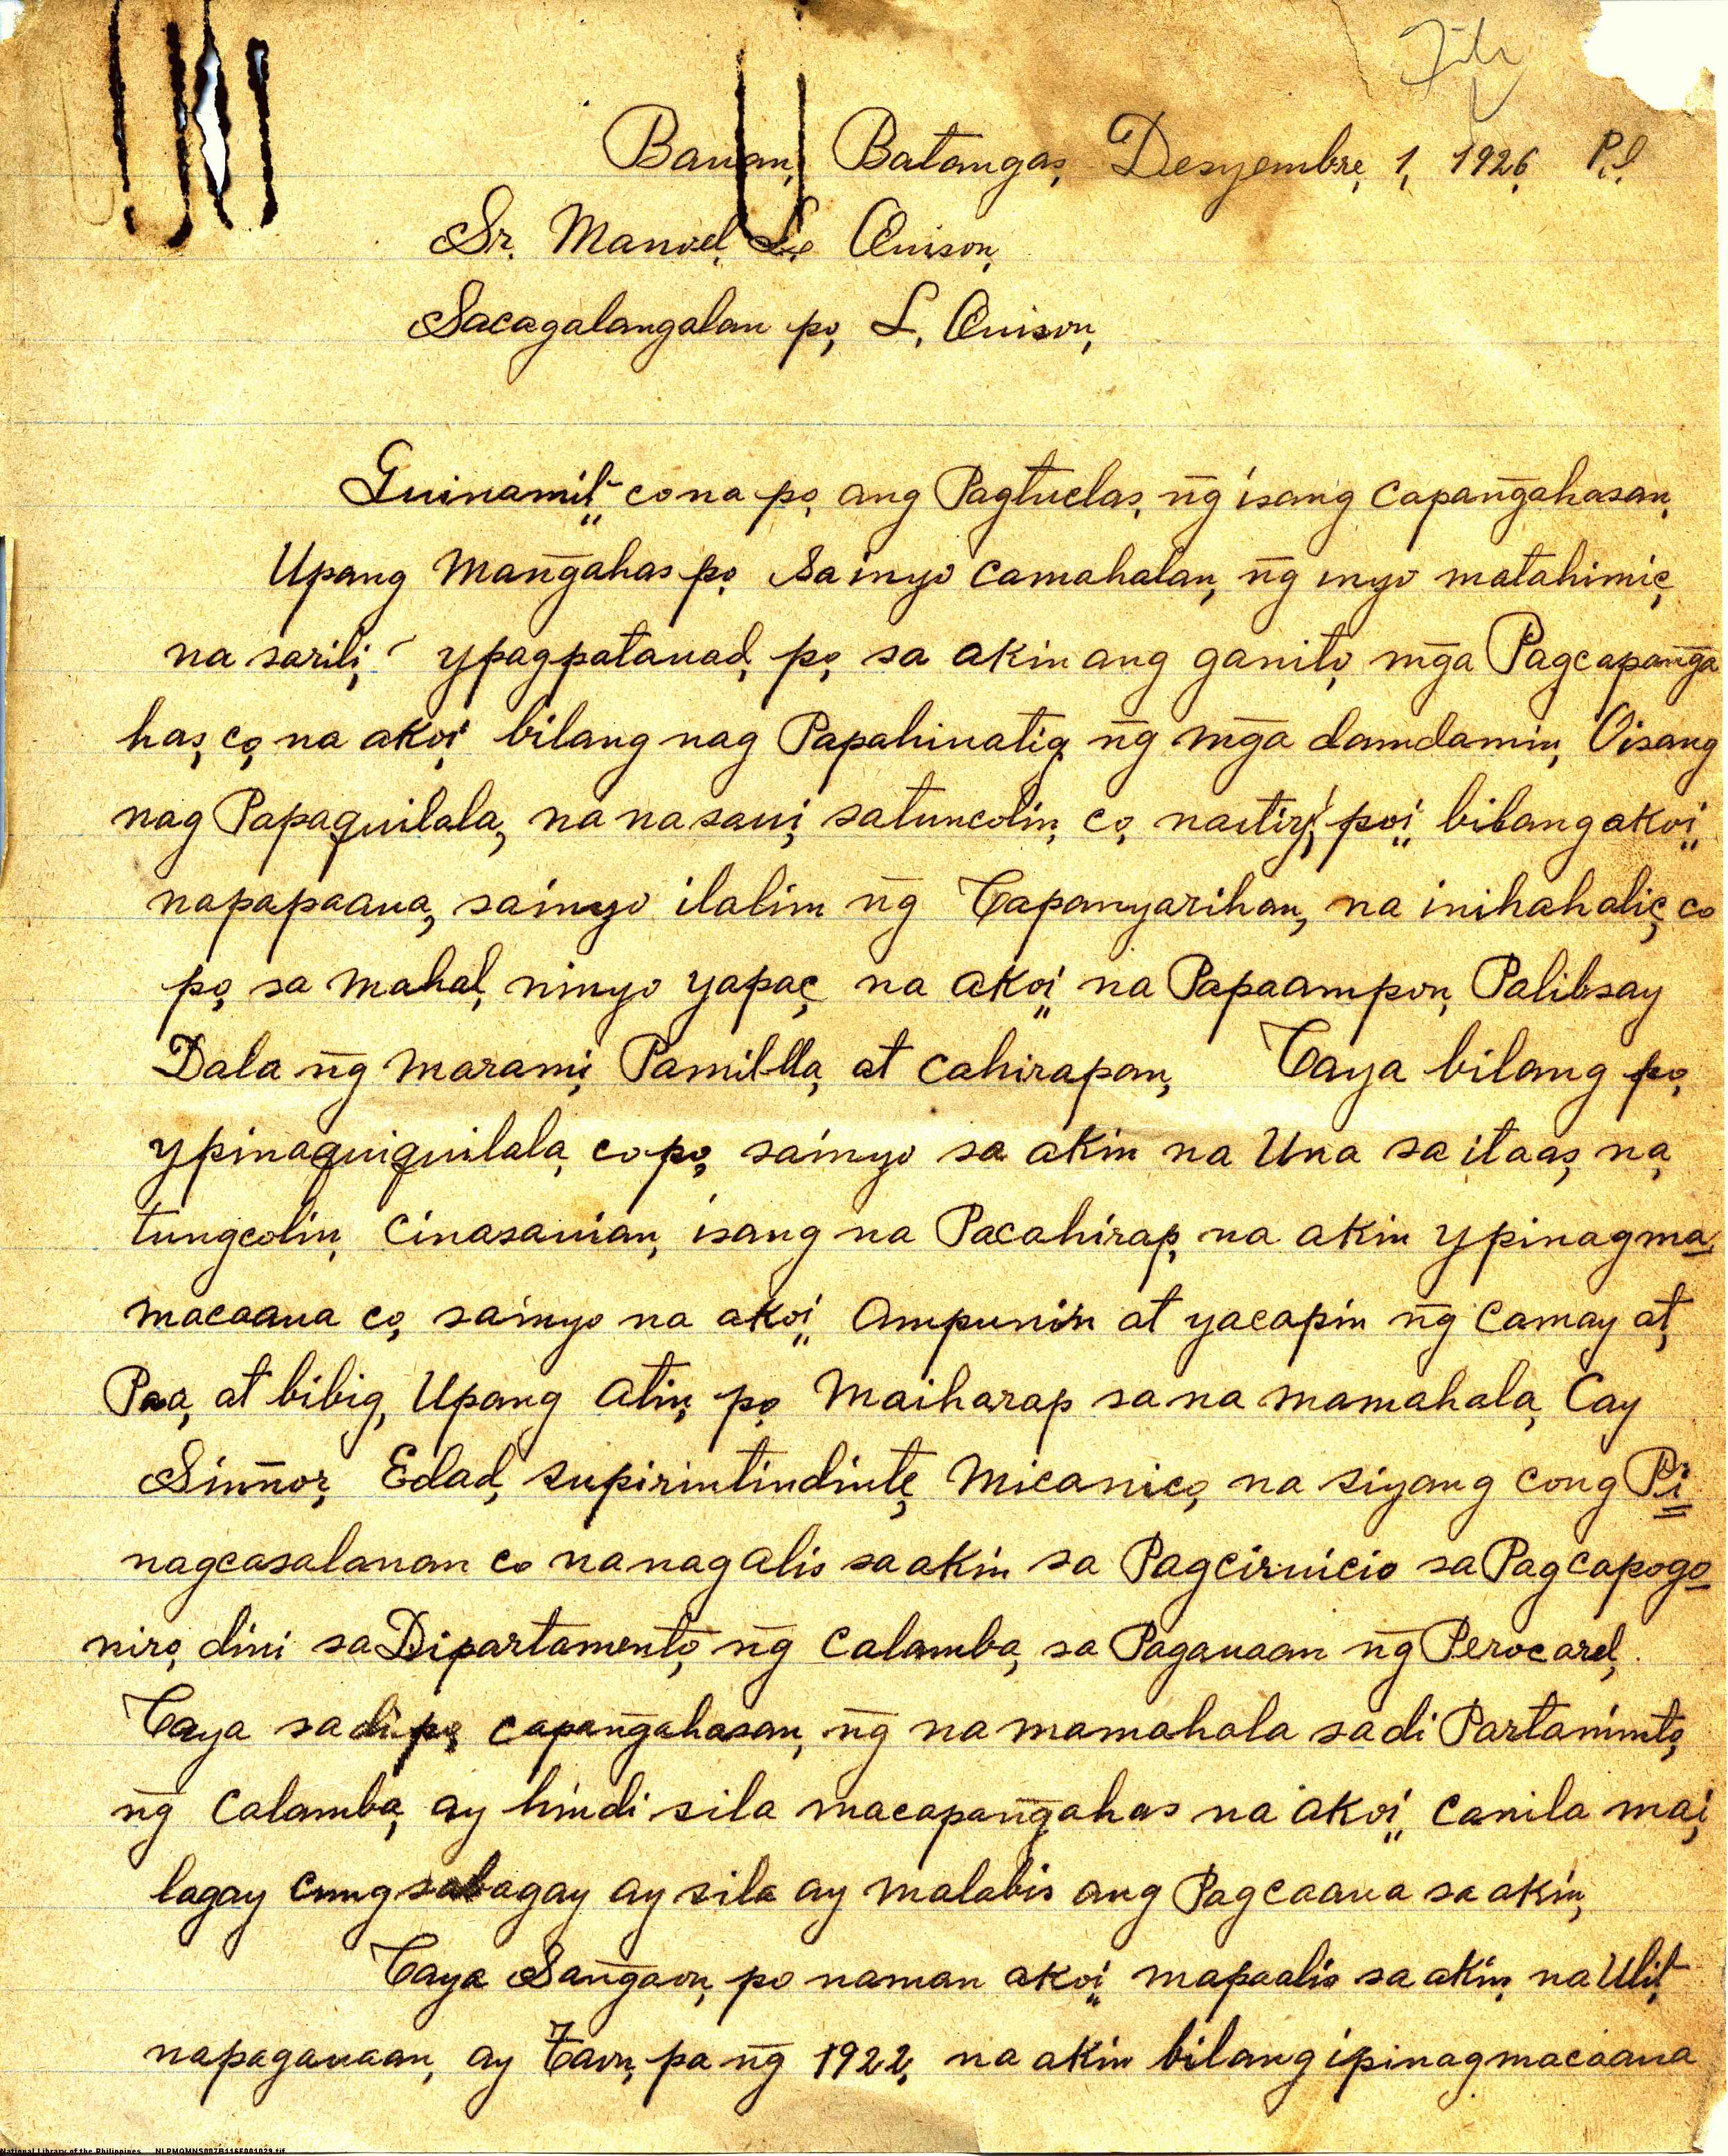 File
Bauan, Batangas, Desyembre, 1, 1926, P.I.
Sr. Manuel, L. Quison,
Sacagalangalan po, L, Quison,
Guinamit, co na po, ang Pagtuclas, n̄g isang capan̄gahasan,
Upang Man̄gahas po, Sa inyo camahalan, n̄g inyo matahimic,
na sarili, ypagpatauad, po, sa akin ang ganito, m̄ga Pagcapan̄ga
has, co, na akoi bilang nag Papahinatig n̄g m̄ga damdamin, Oisang
nag Papaquilala, na nasaui, satuncolin, co, naitiry, poi, bilang akoi,
napapaaua, sainyo ilalim n̄g Capanyarihan, na inihahalic, co
po, sa mahal, ninyo yapac, na akoi, na Papaampon, Palibsay
Dala n̄g marami, Pamillla, at cahirapan, Caya bilang po,
ypinaquiquilala, co po, sainyo sa akin na Una sa itaas, na,
tungcolin, cinasauian, isang na Pacahirap, na akin ypinagma,
macaaua co, sainyo na akoi, Ampunin at yacapin n̄g Camay at,
Paa, at bibig, Upang atin, po, Maiharap sa na mamahala, Cay
Sinnor, Edad, supirintindinte, Micanico, na siyang cong Pi
nagcasalanan co na nag alis sa akin sa Pagcirvicio sa Pagcapogo
niro, dini sa Dipartamento, n̄g Calamba, sa Pagauaan n̄g Perocarel,
Caya sa di po, capan̄gahasan, n̄g na mamahala sa di Partaminto,
n̄g Calamba, ay hindi sila macapan̄gahas na akoi, canila mai,
lagay cung sabagay ay sila ay malabis ang Pagcaaua sa akin,
Caya San̄gaon, po naman akoi, mapaalis sa akin, na Ulit,
napagauaan, ay Taon, pa n̄g 1922, na akin bilang ipinagmacaaua
National Library of the Philippines NLPMQMNS007B116F001029.tif